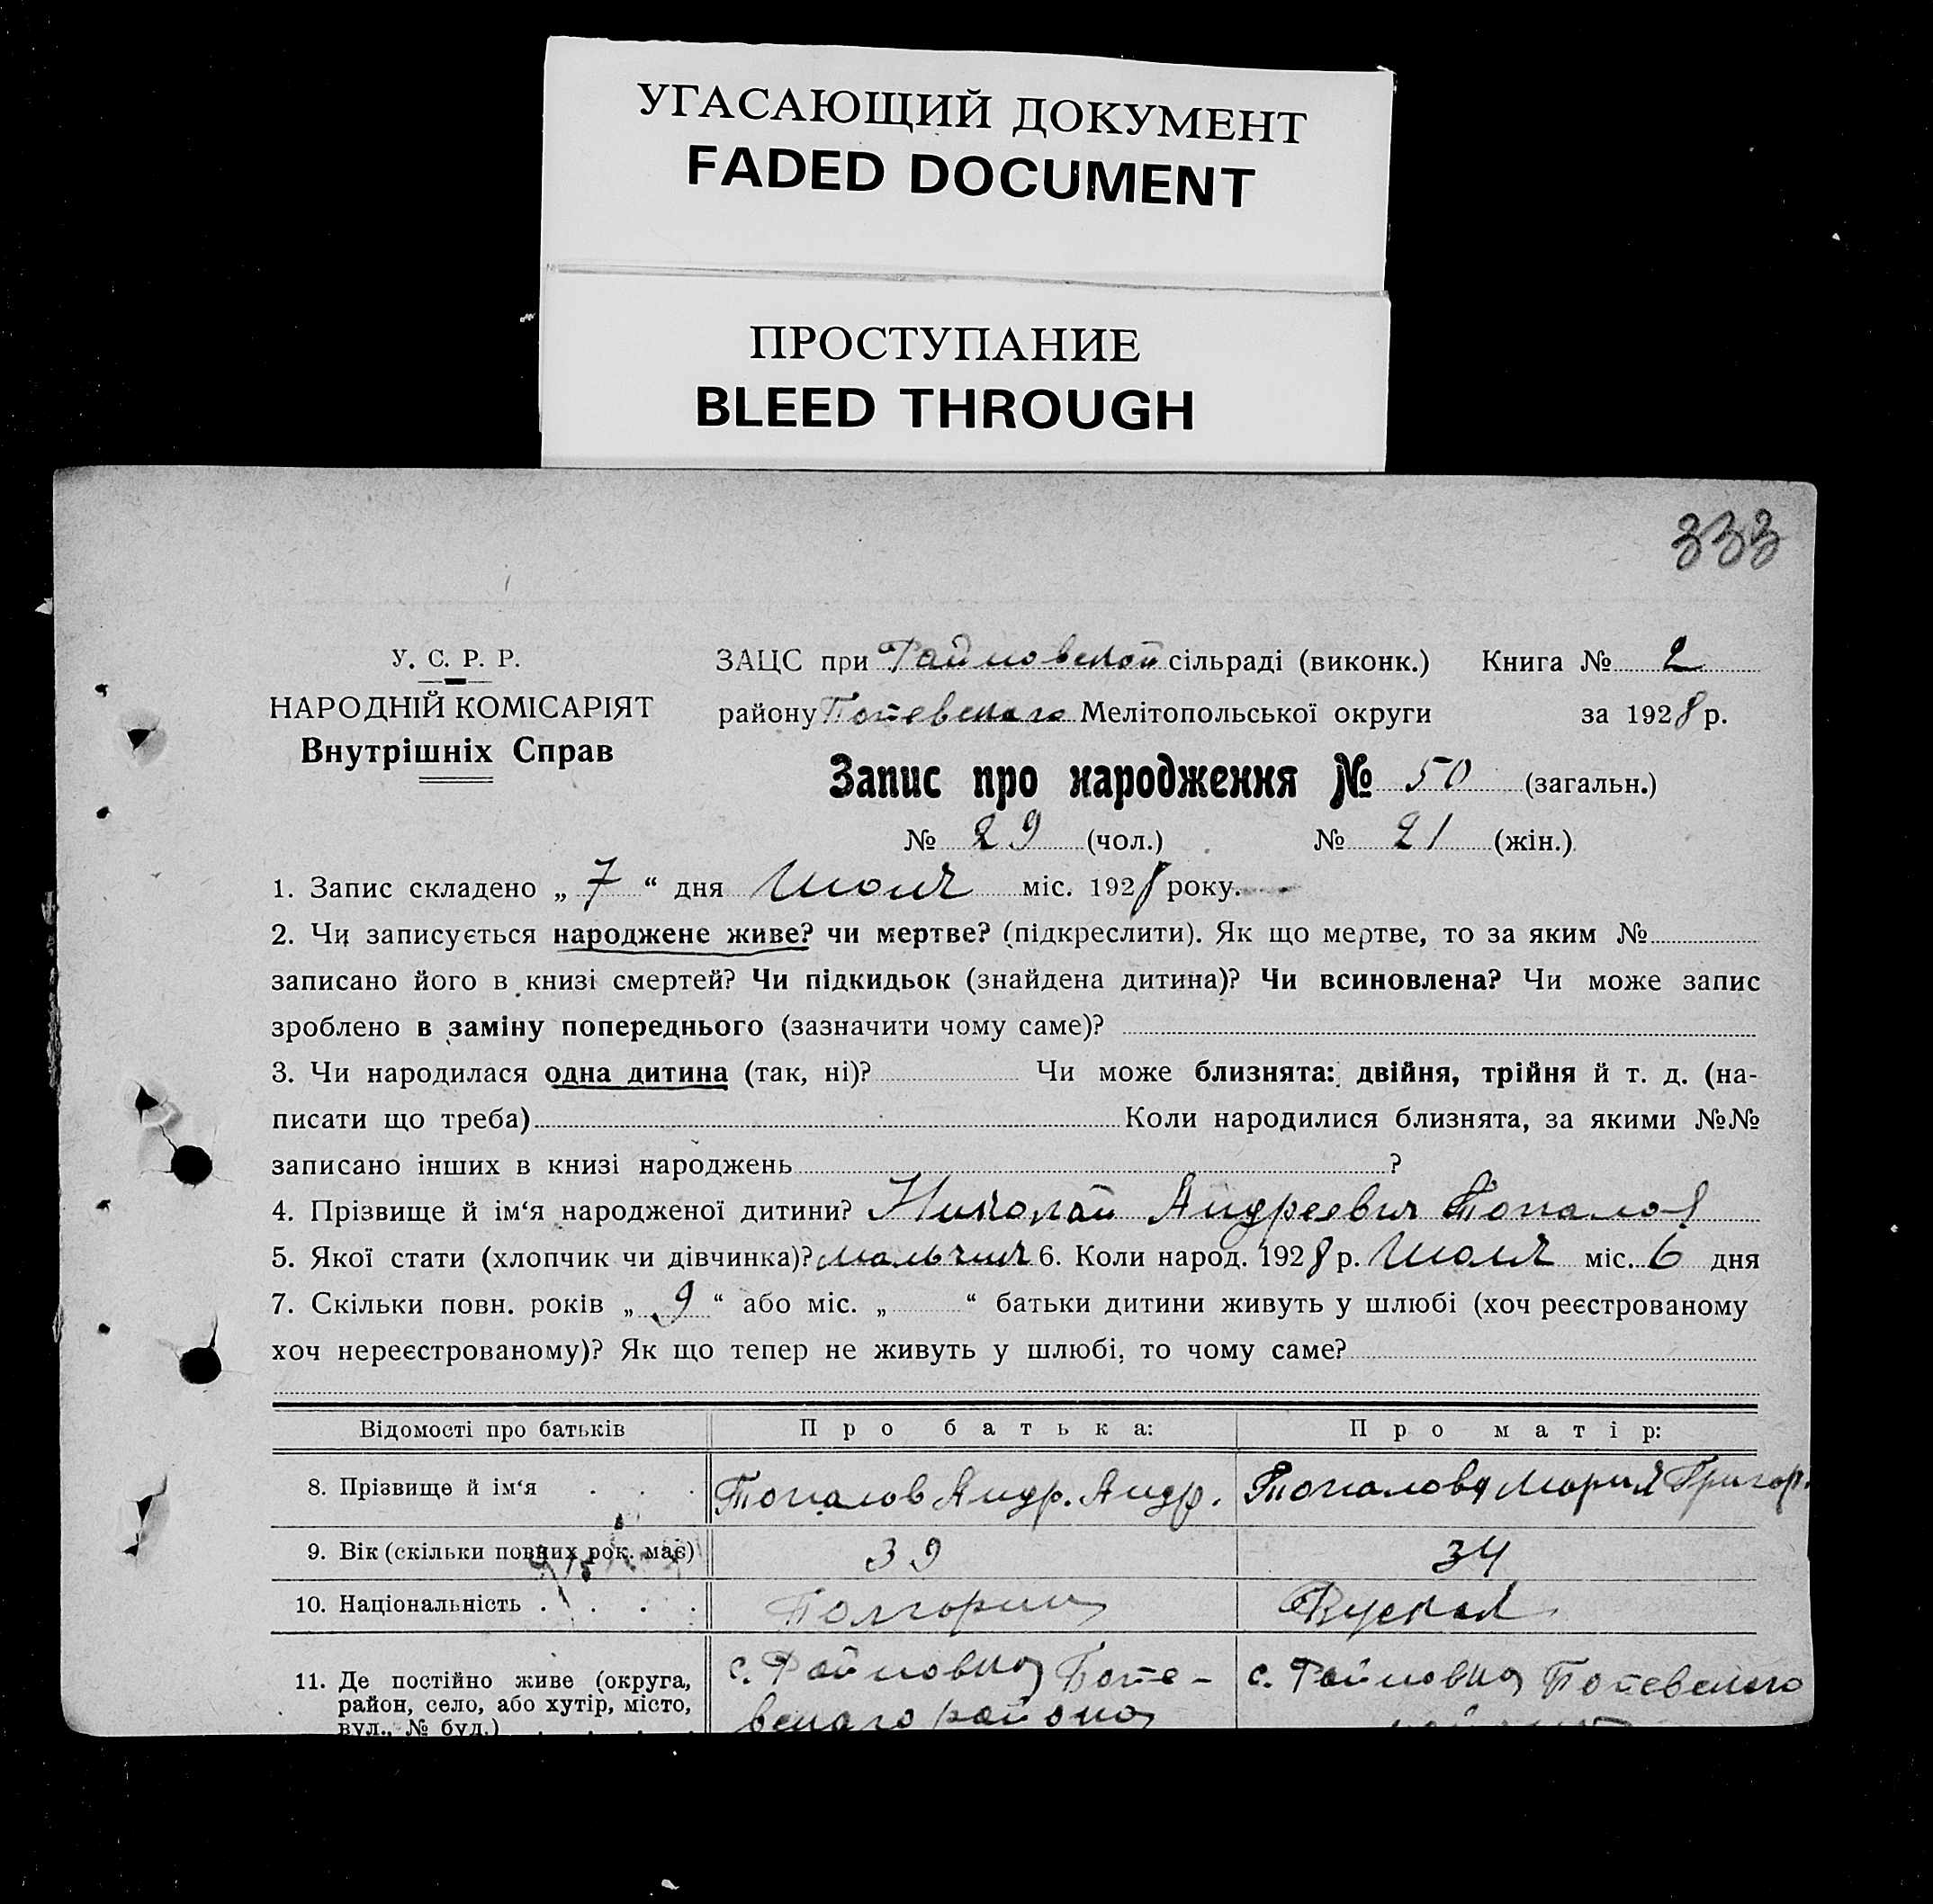 УГАСАЮЩИЙ ДОКУМЕНТ
FADED DOCUMENT
ПРОСТУПАНИЕ
BLEED THROUGH
333
У. С. Р. Р.
НАРОДНІЙ КОМІСАРІЯТ
Внутрішніх Справ
ЗАЦС при Райновской сільраді (виконк.) Книга № 2
району Ботевского Мелітопольської округи за 1928 р.
Запис про народження № 50 (загальн.)
№ 29 (чол.) № 21 (жін.)
1. Запис складено „ 7 “ дня міс. 1928 року.
2. Чи записується народжене живе? чи мертве? (підкреслити). Як що мертве, то за яким №
записано його в книзі смертей? Чи підкидьок (знайдена дитина)? Чи всиновлена? Чи може запис
зроблено в заміну попереднього (зазначити чому саме)?
3. Чи народилася одна дитина (так, ні)? Чи може близнята: двійня, трійня й т. д. (на-
писати що треба) Коли народилися близнята, за якими №№
записано інших в книзі народжень ?
4. Прізвище й ім‘я народженої дитини? Николай Андреевич Топалов
5. Якої стати (хлопчик чи дівчинка)? мальчик 6. Коли народ. 1928 р. міс. 6 дня
7. Скільки повн. років „ 9 “ або міс. „ “ батьки дитини живуть у шлюбі (хоч реєстрованому
хоч нереєстрованому)? Як що тепер не живуть у шлюбі, то чому саме?
Відомості про батьків Про батька: Про матір:
8. Прізвище й ім‘я . . . Топалов Андр. Андр. Топалова Мария Григор.
9. Вік (скільки повних рок. має) 39 34
10. Національність . . . . Болгорин Руская
11. Де постійно живе (округа, с. Райновка Боте- с. Райновка Ботевского
район, село, або хутір, місто, вского района
вул., № буд.) . . . .